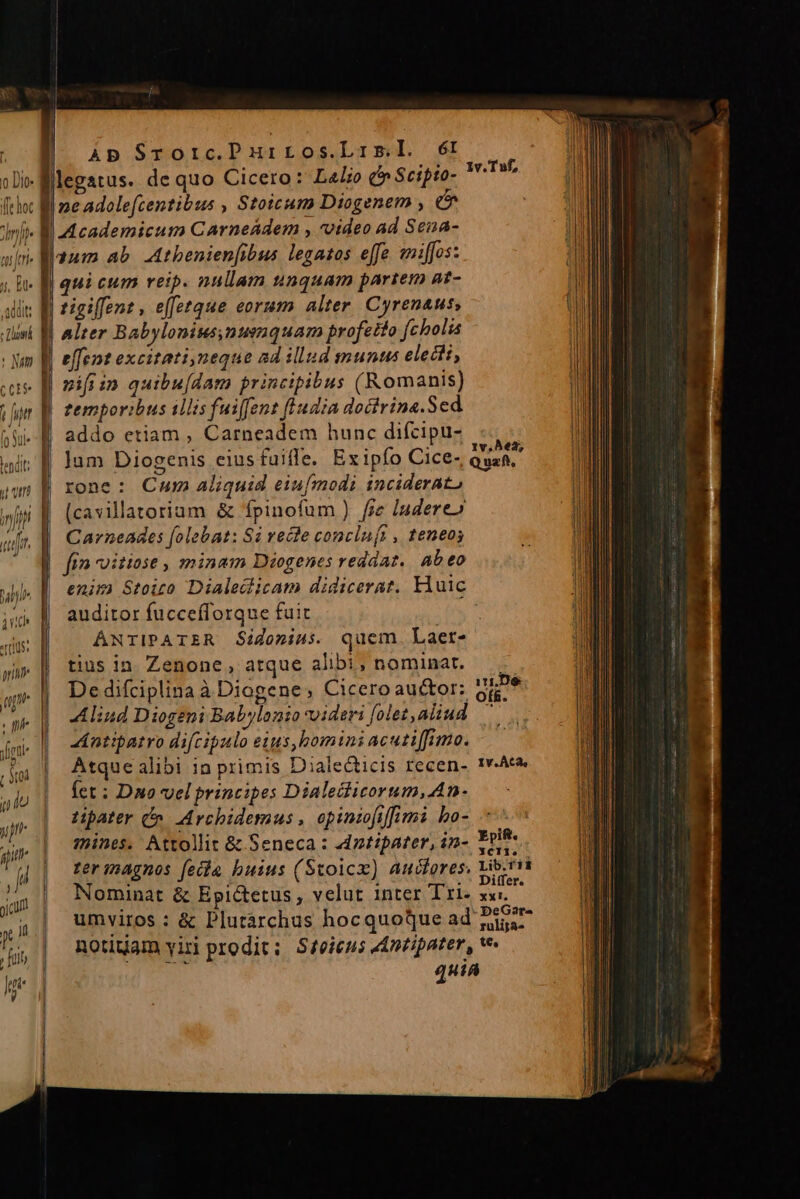 AD STOIC. PHILOS. LIB. I. 61
legatus. de quo Cicero: Lælio & Scipio-
ne adoleſcentibus, Stoicum Diogenem, &
Academicum Carneadem, video ad Sena-
tum ab Athenienſibus legatos eſſe miſſos:
qui cum reip. nullam unquam partem at-
tigiſſent, eſſetque eorum alter Cyrenæus,
alter Babylonius, nunquam profecto ſcholis
eſſent excitati, neque ad illud munus electi,
niſi in quibuſdam principibus (Romanis)
temporibus illis fuiſſent ſtudia doctrinæ. Sed
addo etiam, Carneadem hunc diſcipu-
lum Diogenis eius fuiſſe. Ex ipſo Cice-
rone: Cum aliquid eiuſmodi inciderat
(cavillatorium & ſpinoſum) ſic ludere
Carneades ſolebat: Si recte concluſi, teneo;
ſin vitiose, minam Diogenes reddat. ab eo
enim Stoico Dialecticam didicerat. Huic
auditor ſucceſſorque fuit
ANTIPATER Sidonius. quem Laer-
tius in Zenone, atque alibi, nominat.
De diſciplina à Diogene, Cicero auctor:
Aliud Diogeni Babylonio videri ſolet, aliud
Antipatro diſcipulo eius, homini acutiſſimo.
Atque alibi in primis Dialecticis recen-
ſet: Duo vel principes Dialecticorum, An-
tipater & Archidemus, opinioſiſſimi ho-
mines. Attollit & Seneca: Antipater, in-
ter magnos ſectæ huius (Stoicæ) auctores.
Nominat & Epictetus, velut inter Tri-
umviros: & Plutarchus hoc quoque ad
notitiam viri prodit: Stoicus Antipater,
quia
IV. Tuſ.
IV. Aca.
Quæſt.
III. De
Offi.
IV. Aca.
Epiſt.
XCII.
Lib. III
Differ.
XXI.
De Gar-
rulita-
te.